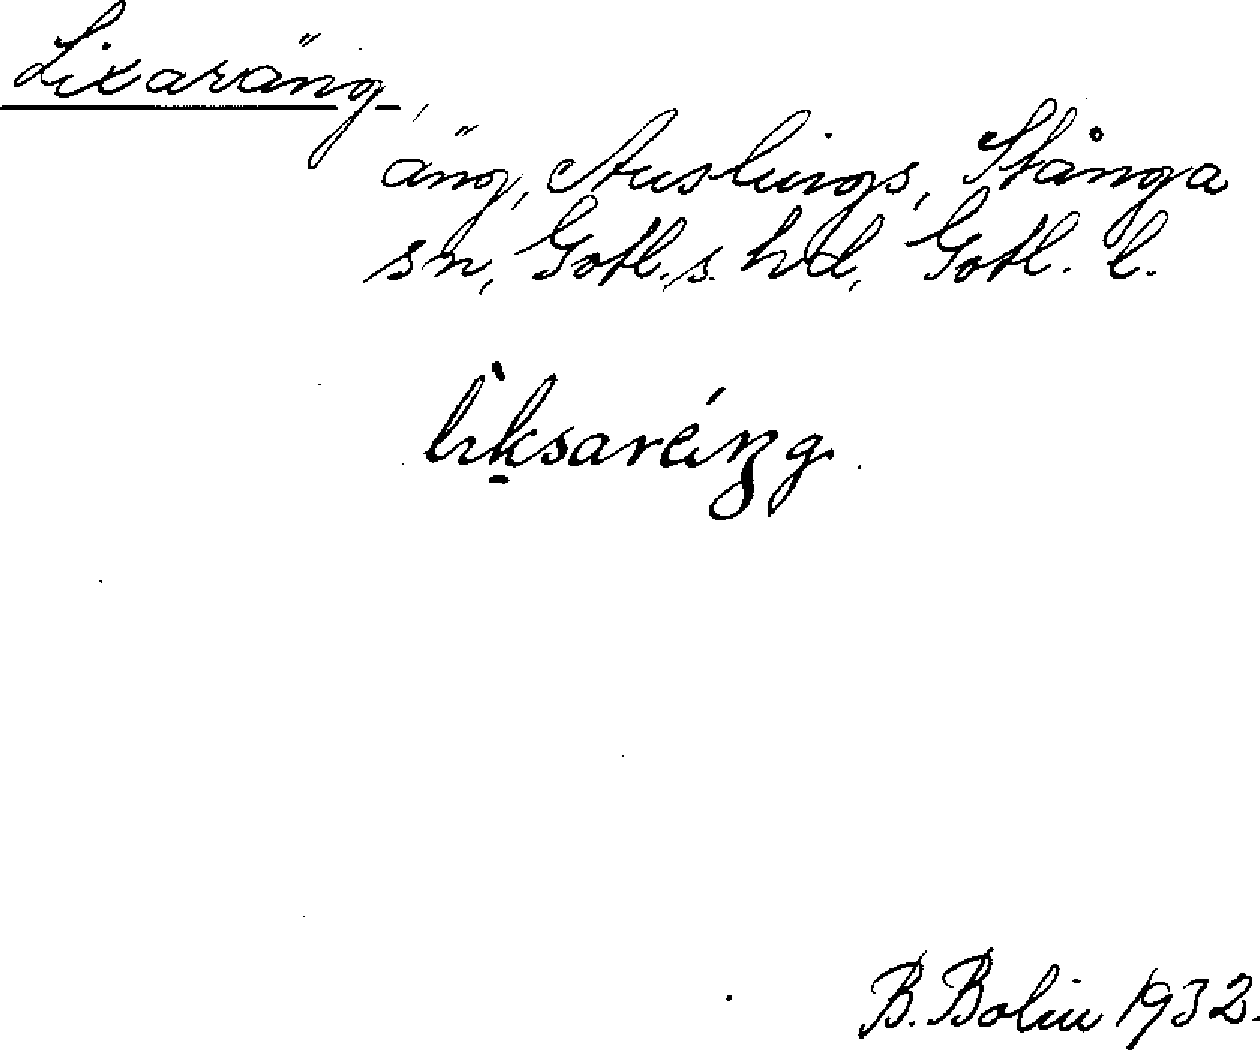 Lixaräng,
äng, Auslings, Stånga
sn, Gotl. s. hd, Gotl. l.
B. Bolin 1932.